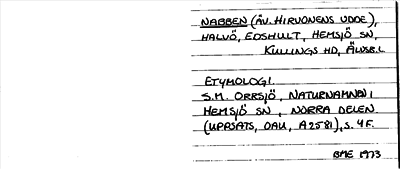 NABBEN (ÄV. HIRVONENS UDDE),
HALVÖ, EDSHULT, HEMSJÖ SN,
KULLINGS HD, ÄLVSB.L.
ETYMOLOGI.
S.M. ORRSJÖ, NATURNAMN I
HEMSJÖ SN, NORRA DELEN
(UPPSATS, OAU, A2581), S. 4F.
BME 1973